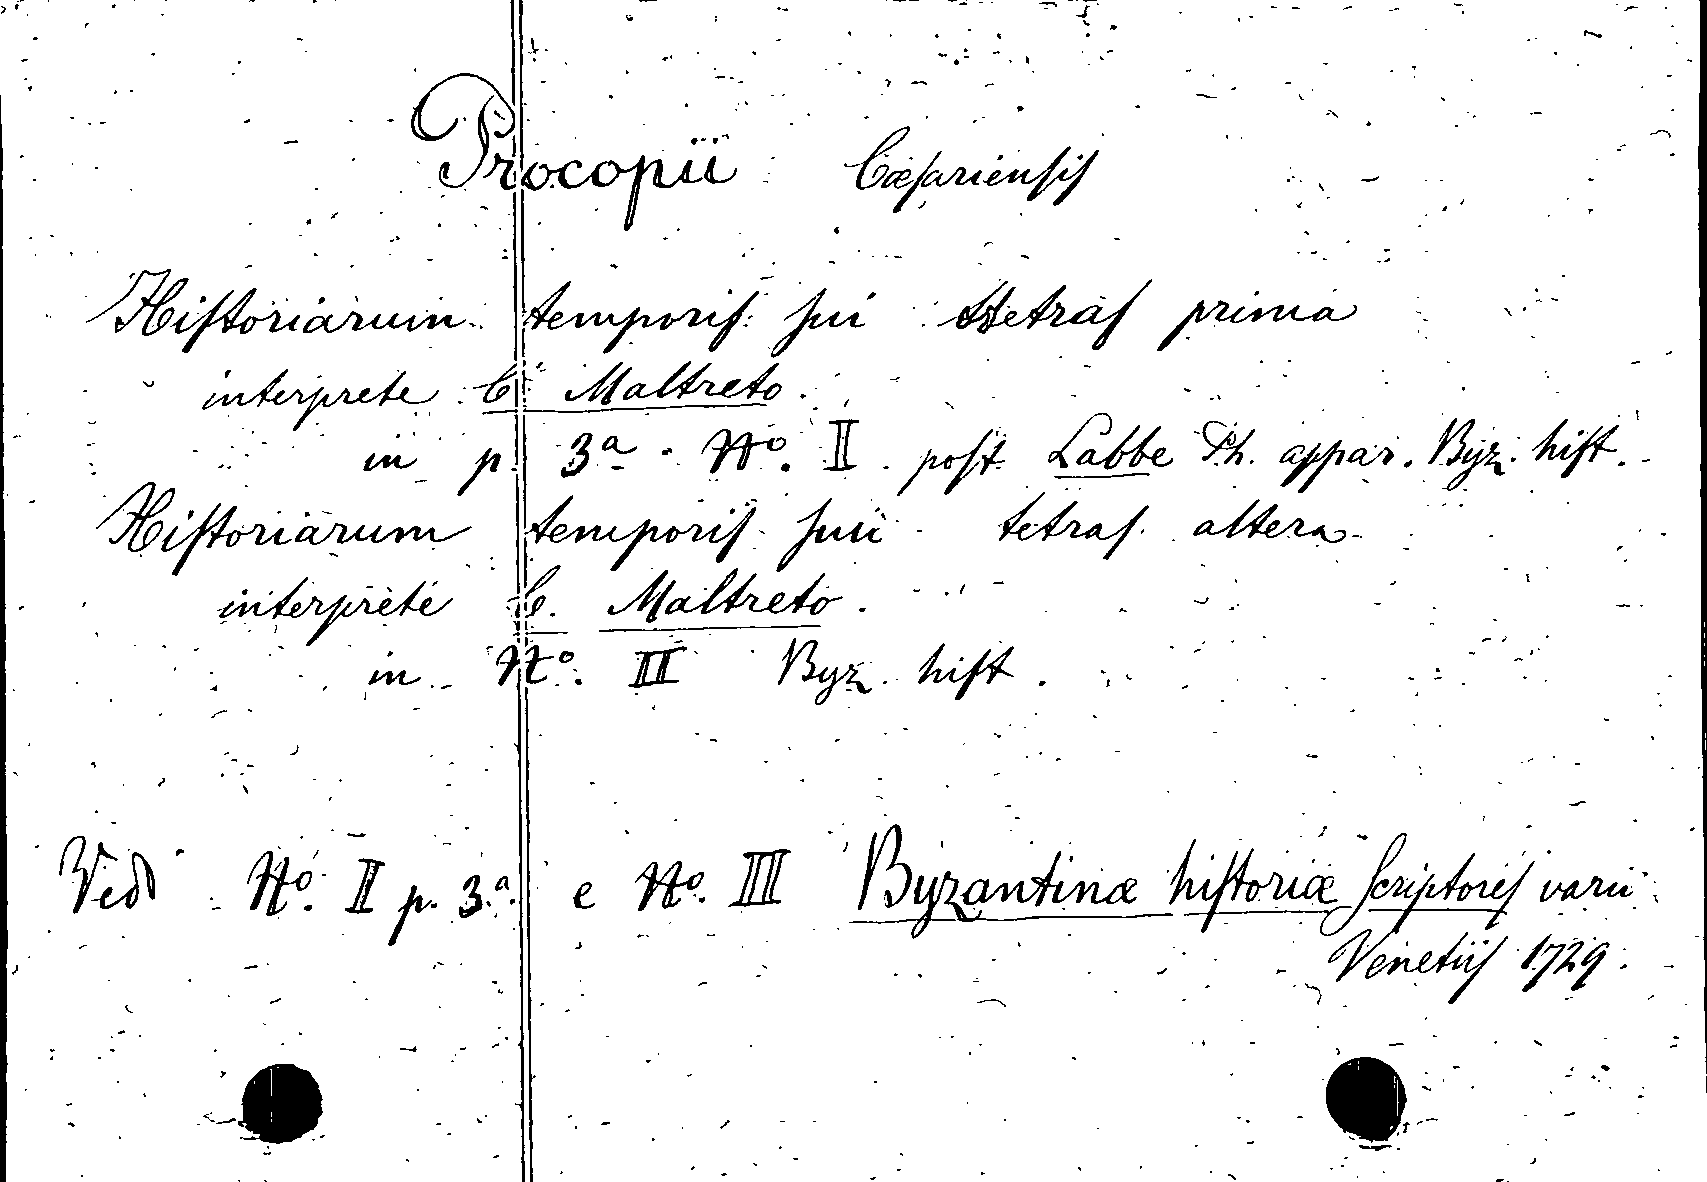 Procopii Cæſariensiſ
Hiſtoriarum temporiſ ſui tetraſ prima
interprete C. Maltreto.
in p. 3ª. Nº. II post Labbe Ph. appar. Byz. hiſt.
Hiſtoriarum temporiſ ſui tetraſ altera
interprete C. Maltreto.
in Nº. III Byz. hiſt.
Vedi Nº. II p. 3.ª e Nº. III Byzantinæ hiſtoriæ Scriptoreſ varii
Venetiiſ 1729.